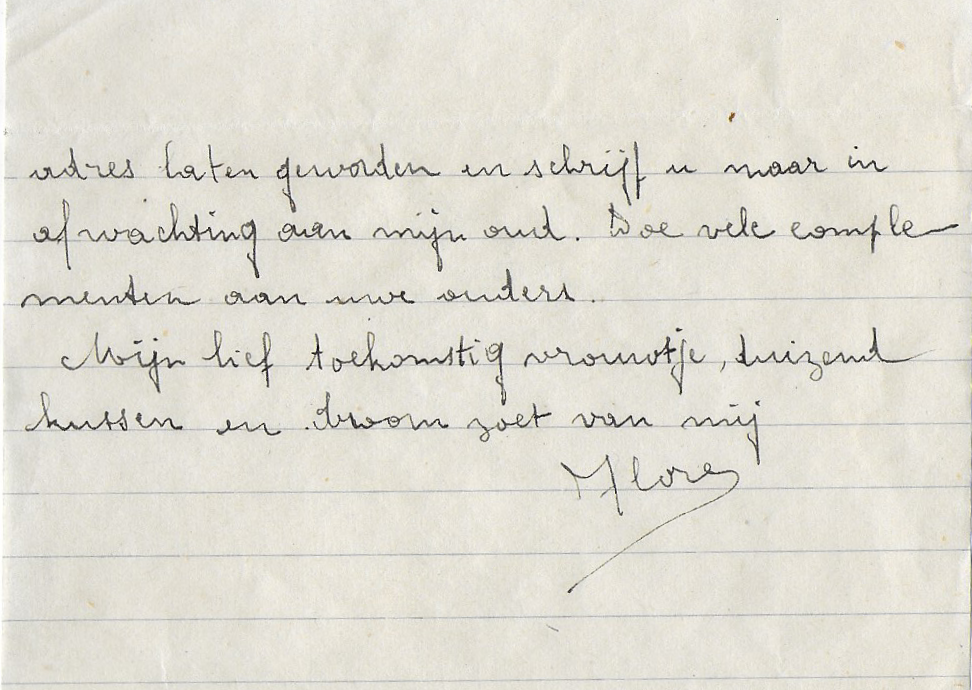 adres laten geworden en schrijf u maar in
afwachting aan mijn oud. Doe vele comple-
menten aan uwe ouders.
Mijn lief toekomstig vrouwtje, duizend
kussen en droom zoet van mij
Flores